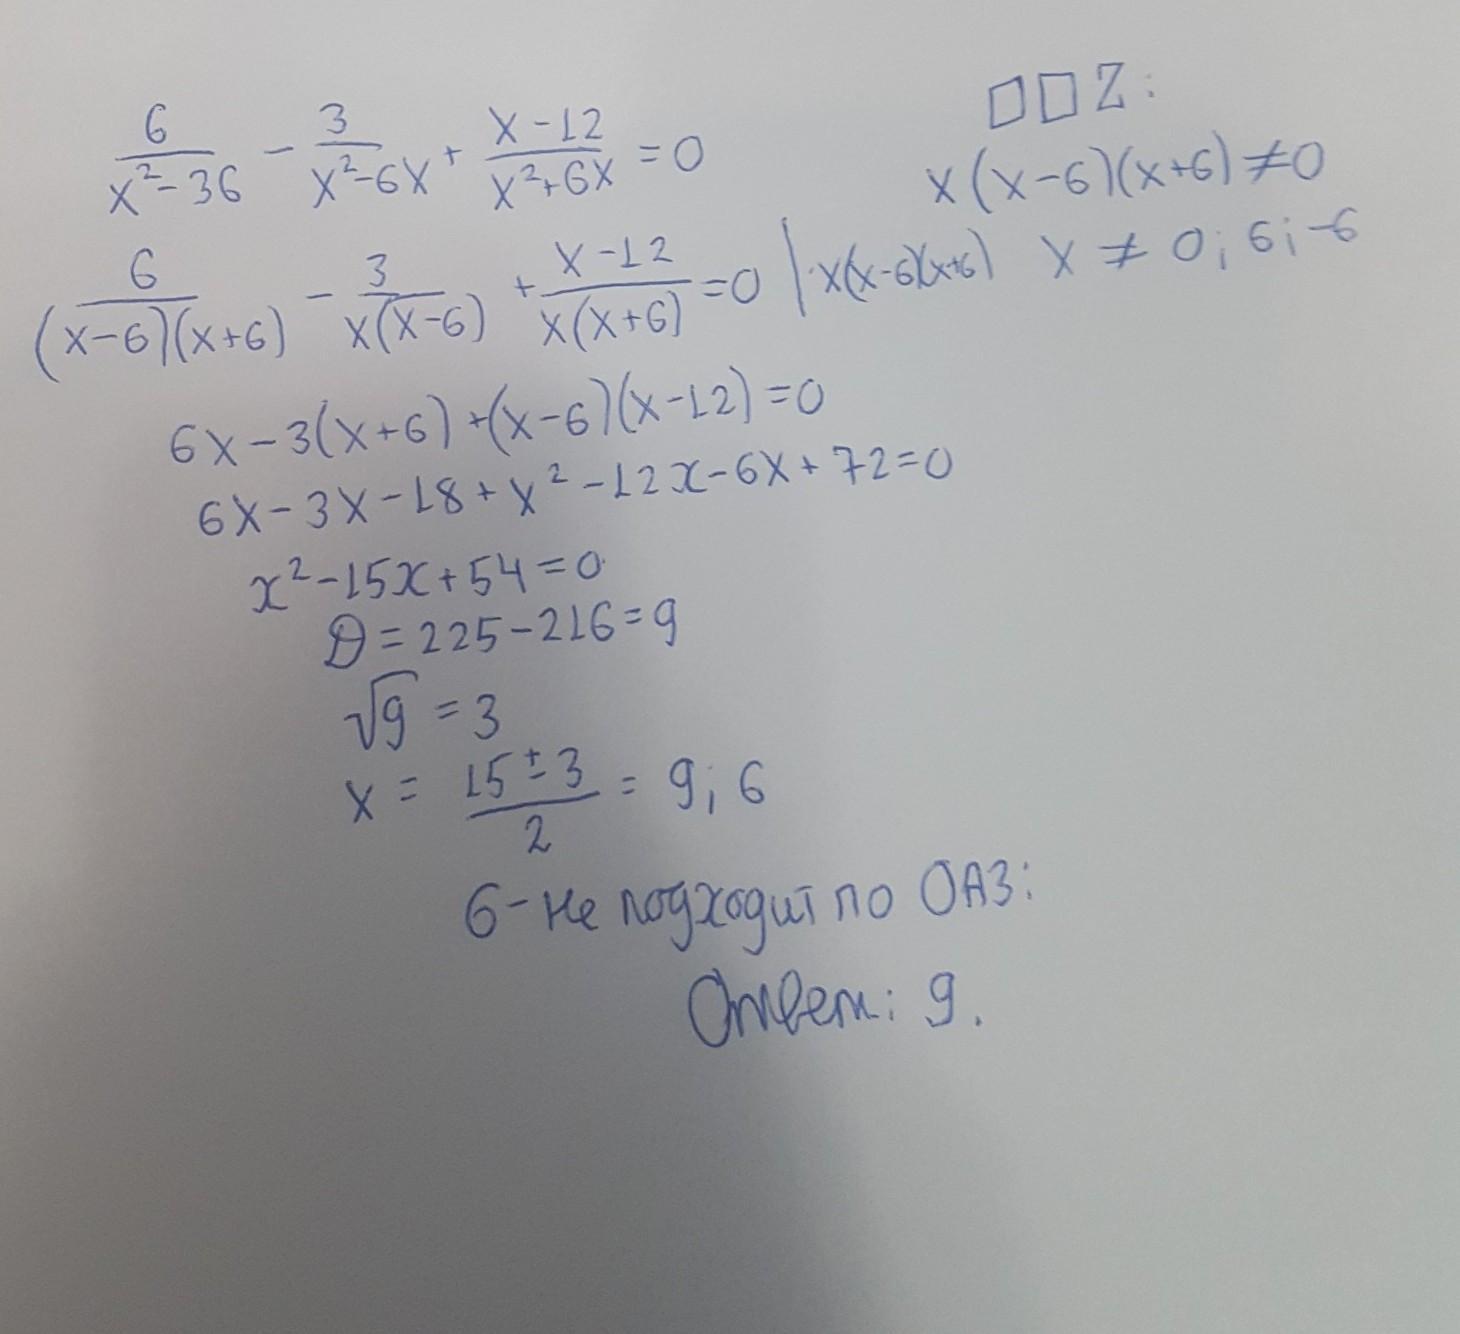 6/(x²-36) - 3/(x²-6x) + (x-12)/(x²+6x) = 0
□□Z:
x(x-6)(x+6)≠0
6/((x-6)(x+6)) - 3/(x(x-6)) + (x-12)/(x(x+6)) = 0 | ·x(x-6)(x+6)
x ≠ 0; 6; -6
6x-3(x+6)+(x-6)(x-12)=0
6x-3x-18+x²-12x-6x+72=0
x²-15x+54=0
D=225-216=9
√9 = 3
x = (15±3)/2 = 9; 6
6-не подходит по ОАЗ:
Ответ: 9.